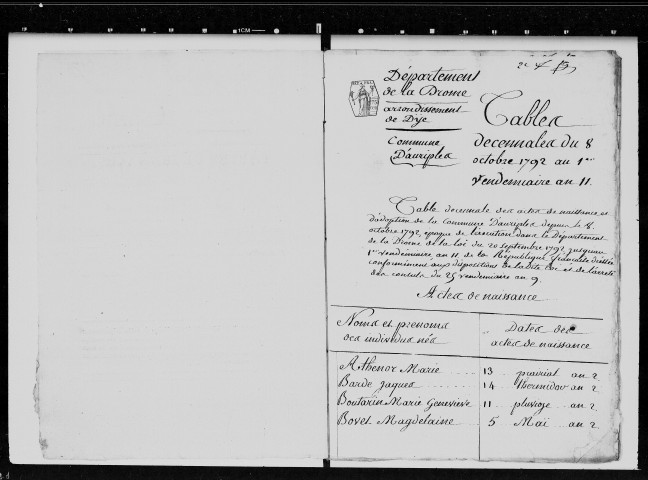 Département
de la Drome
arrondissement
de Dye
Commune
D'auriples
Tables
decennales du 8
octobre 1792 au 1er
vendemiaire an 11.
Table decennale des actes de naissance et
d'adoption de la Commune D'auriples depuis le 8.
octobre 1792 epoque de l'execution dans le Département
de la Drome de la loi du 20 septembre 1792 jusqu'au
1er vendemiaire an 11. de la République française dressée
conformement aux dispositions de la dite loi et de l'arreté
des consuls du 25 vendemiaire an 9.
Actes de naissance
Noms et prenoms
des individus nés
Dates des
actes de naissance
Athenor Marie 13 prairial an 2
Barde jaques 14 thermidor an 2
Boutarin Marie Genevieve 11 pluvioze an 2
Bovet Magdelaine 5 Mai an 2
1CM